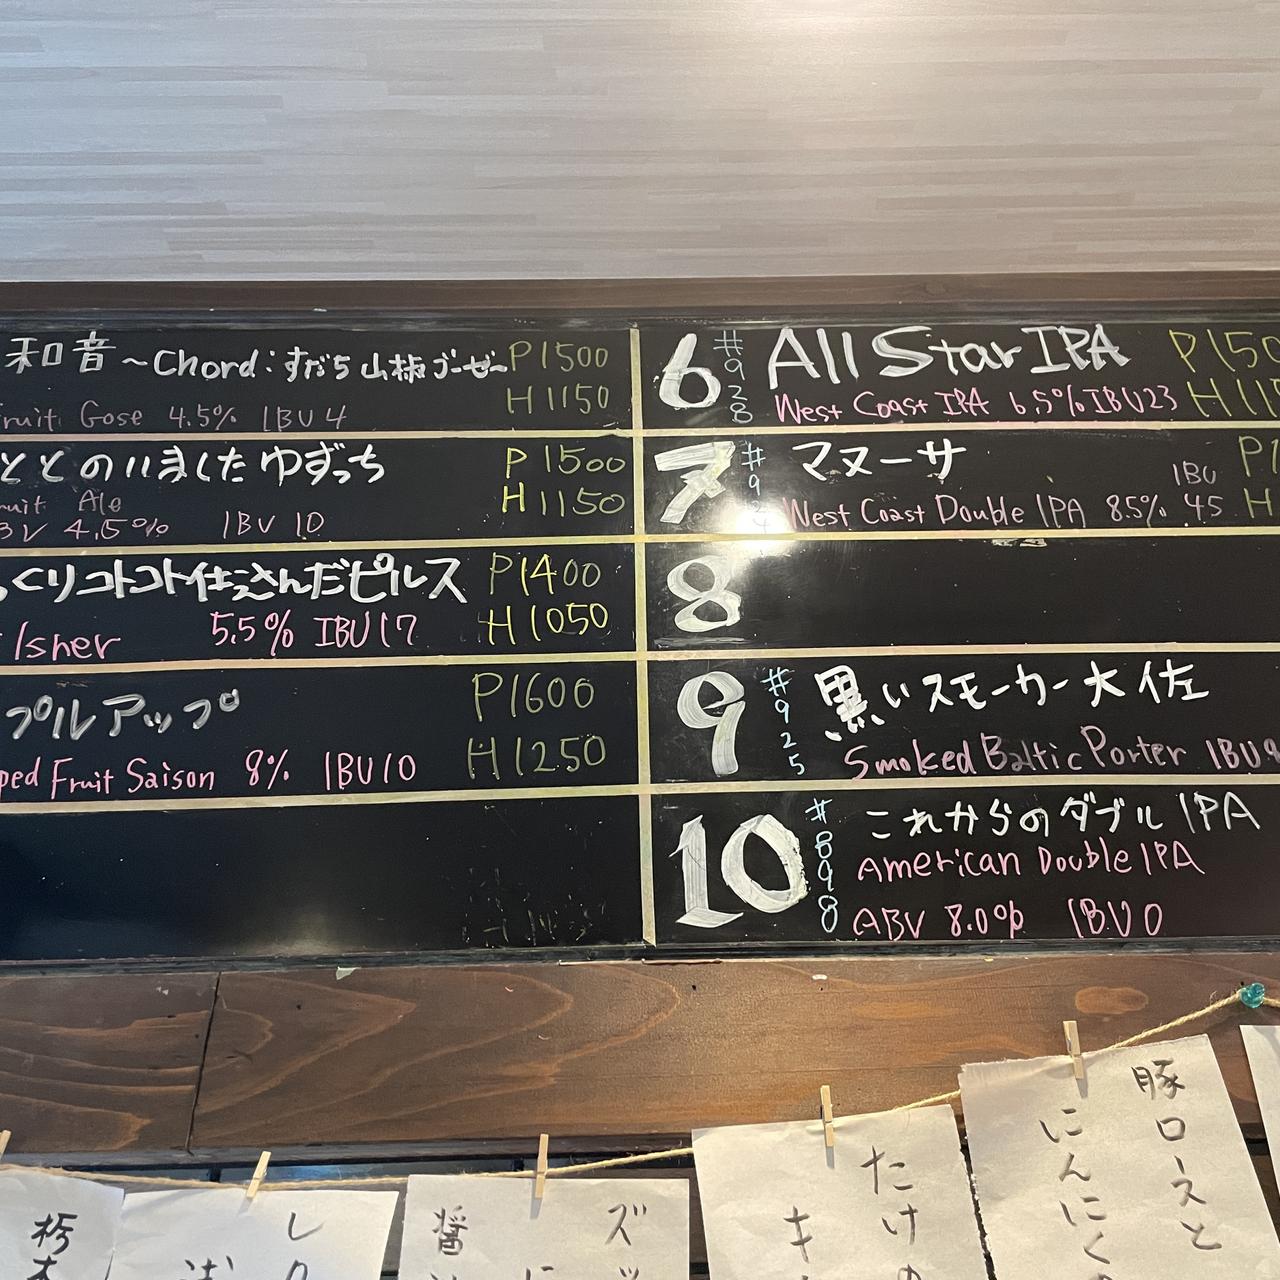 和音〜Chord:すだち山椒ゴーゼ〜 P1500
H1150
ruit Gose 4.5% IBU4
ととのいました ゆずっち P1500
H1150
ruit Ale
BV 4.5% IBV 10
くりコトコト仕込んだピルス P1400
H1050
lsner 5.5% IBU17
プルアップ P1600
H1250
ped Fruit Saison 8% IBU10
6 #928 All Star IPA P150
West Coast IPA 6.5% IBU23 H115
7 #924 マヌーサ P1
West Coast Double IPA 8.5% IBU 45 H
8
9 #925 黒いスモーカー大佐
Smoked Baltic Porter IBU
10 #898 これからのダブルIPA
American Double IPA
ABV 8.0% IBU0
豚ロースと
にんにく
たけの
キ
ズッ
に
醤
し
浅
栃木